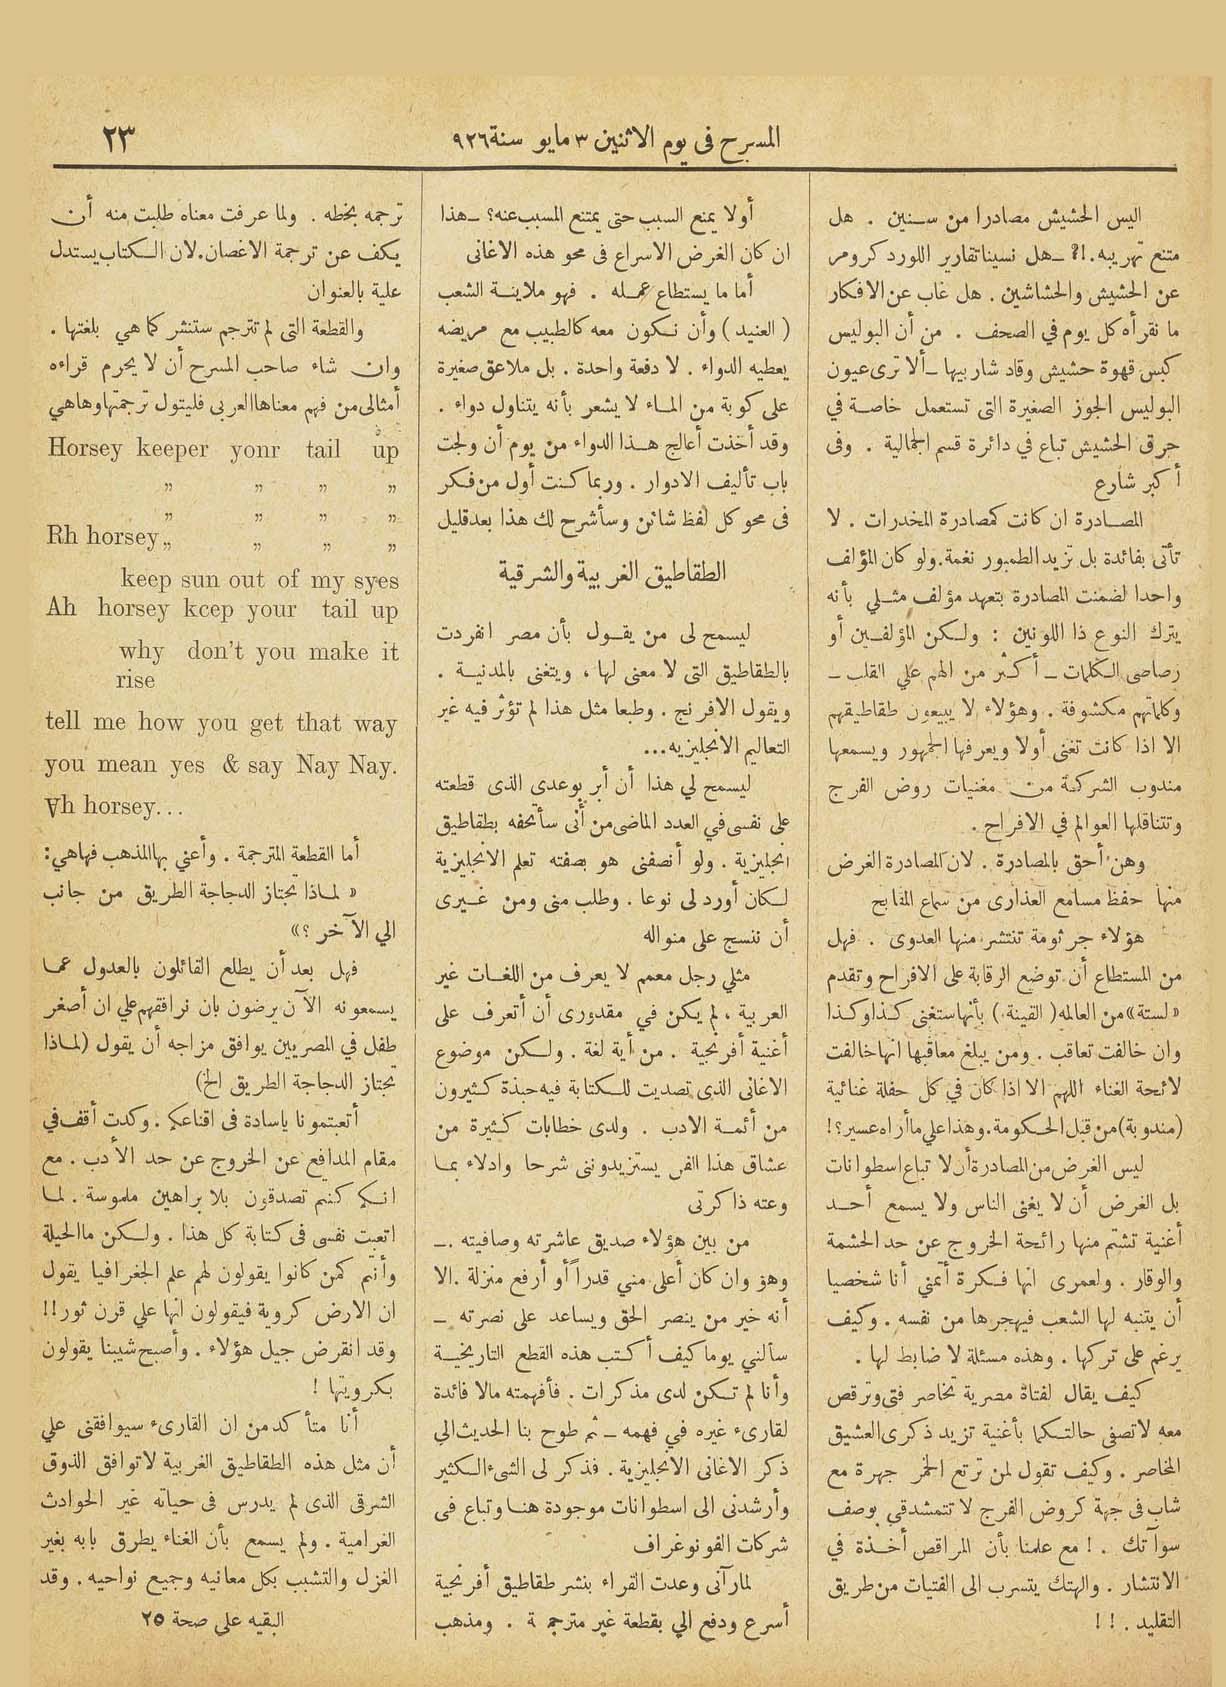 المسرح فى يوم الاثنين ٣ مايو سنة ٩٢٦
٢٣
اليس الحشيش مصادرا من سنين . هل
متنع تهريبه .!؟ ــ هل نسينا تقارير اللورد كرومر
عن الحشيش والحشاشين . هل غاب عن الافكار
ما نقرأه كل يوم في الصحف . من أن البوليس
كبس قهوة حشيش وقاد شاربيها ــ ألا ترى عيون
البوليس الجوز الصغيرة التى تستعمل خاصة في
حرق الحشيش تباع في دائرة قسم الجمالية . وفى
أكبر شارع
المصادرة ان كانت كمصادرة المخدرات . لا
تأتى بفائدة بل تزيد الطمبور نغمة . ولو كان المؤلف
واحدا لضمنت المصادرة بتعهد مؤلف مثلي بأنه
يترك النوع ذا اللونين : ولكن المؤلفين أو
رصاصى الكلمات ــ أكثر من الهم علي القلب ــ
وكلماتهم مكشوفة . وهؤلاء لا يبيعون طقاطيقهم
الا اذا كانت تغنى أولا ويعرفها الجمهور ويسمعها
مندوب الشركة من مغنيات روض الفرج
وتتناقلها العوالم في الافراح .
وهن أحق بالمصادرة . لان المصادرة الغرض
منها حفظ مسامع العذارى من سماع القبايح
هؤلاء جرثومة تنتشر منها العدوى . فهل
من المستطاع أن توضع الرقابة على الافراح وتقدم
«لستة» من العالمه ( القينة ) بأنها ستغنى كذا وكذا
وان خالفت تعاقب . ومن يبلغ معاقبها انها خالفت
لائحة الغناء اللهم الا اذا كان في كل حفلة غنائية
(مندوبة) من قبل الحكومة . وهذا علي ما أراه عسير؟!
ليس الغرض من المصادرة أن لا تباع اسطوانات
بل الغرض أن لا يغنى الناس ولا يسمع أحد
أغنية تشتم منها رائحة الخروج عن حد الحشمة
والوقار . ولعمرى انها فكرة أتمني أنا شخصيا
أن يتنبه لها الشعب فيهجرها من نفسه . وكيف
يرغم على تركها . وهذه مسئلة لا ضابط لها .
كيف يقال لفتاة مصرية تخاصر فتى وترقص
معه لا تصفى حالتكما بأغنية تزيد ذكرى العشيق
المخاصر . وكيف تقول لمن ترتع الخمر جهرة مع
شاب فى جهة كروض الفرج لا تتمشدقي بوصف
سوآتك .! مع علمنا بأن المراقص أخذة في
الانتشار . والهتك يتسرب الى الفتيات من طريق
التقليد . ! !
أولا يمنع السبب حتى يمتنع المسبب عنه؟ ــ هذا
ان كان الغرض الاسراع فى محو هذه الاغانى
أما ما يستطاع عمله . فهو ملاينة الشعب
( العنيد ) وأن نكون معه كالطبيب مع مريضه
يعطيه الدواء . لا دفعة واحدة . بل ملاعق صغيرة
على كوبة من الماء لا يشعر بأنه يتناول دواء .
وقد أخذت أعالج هذا الدواء من يوم أن ولجت
باب تأليف الادوار . وربما كنت أول من فكر
فى محو كل لفظ شائن وسأشرح لك هذا بعد قليل
الطقاطيق الغربية والشرقية
ليسمح لى من يقول بأن مصر انفردت
بالطقاطيق التى لا معنى لها ، ويتغنى بالمدنية .
ويقول الافرنج . وطبعا مثل هذا لم تؤثر فيه غير
التعاليم الانجليزيه ...
ليسمح لي هذا أن أبر بوعدى الذى قطعته
على نفسى في العدد الماضى من أنى سأتحفه بطقاطيق
انجليزية . ولو أنصفنى هو بصفته تعلم الانجليزية
لكان أورد لى نوعا . وطلب منى ومن غيرى
أن ننسج على منواله
مثلي رجل معمم لا يعرف من اللغات غير
العربية ، لم يكن في مقدورى أن أتعرف على
أغنية أفرنجية . من أية لغة . ولكن موضوع
الاغانى الذى تصديت للكتابة فيه حبذة كثيرون
من أئمة الادب . ولدى خطابات كثيرة من
عشاق هذا الفن يستزيدوننى شرحا وادلاء بما
وعته ذاكرتى
من بين هؤلاء صديق عاشرته وصافيته . ــ
وهو وان كان أعلى مني قدراً أو أرفع منزلة . الا
أنه خير من ينصر الحق ويساعد على نصرته ــ
سألني يوما كيف أكتب هذه القطع التاريخية
وأنا لم تكن لدى مذكرات . فأفهمته مالا فائدة
لقارىء غيره في فهمه ــ ثم طوح بنا الحديث الي
ذكر الاغانى الانجليزية . فذكر لى الشىء الكثير
وأرشدنى الى اسطوانات موجودة هنا وتباع فى
شركات الفونوغراف
لما رآنى وعدت القراء بنشر طقاطيق أفرنجية
أسرع ودفع الي بقطعة غير مترجمة . ومذهب
ترجمه بخطه . ولما عرفت معناه طلبت منه أن
يكف عن ترجمة الاغصان . لان الكتاب يستدل
علية بالعنوان
والقطعة التى لم تترجم ستنشر كما هي بلغتها .
وان شاء صاحب المسرح أن لا يحرم قراءه
أمثالى من فهم معناها العربى فليتول ترجمتها وها هي
Horsey keeper yonr tail up
” ” ” ”
” ” ” ”
Rh horsey „ ” ” ”
keep sun out of my syes
Ah horsey kcep your tail up
why don't you make it
rise
tell me how you get that way
you mean yes & say Nay Nay.
Ah horsey...
أما القطعة المترجمة . وأعني بها المذهب فهاهي :
« لماذا تجتاز الدجاجة الطريق من جانب
الي الآخر ؟»
فهل بعد أن يطلع القائلون بالعدول عما
يسمعونه الآن يرضون بان نرافقهم علي ان أصغر
طفل في المصريين يوافق مزاجه أن يقول (لماذا
تجتاز الدجاجة الطريق الخ)
أتعبتمونا يا سادة فى اقناعكم . وكدت أقف في
مقام المدافع عن الخروج عن حد الأدب . مع
انكم كنتم تصدقون بلا براهين ملموسة . لما
اتعبت نفسى فى كتابة كل هذا . ولكن ما الحيلة
وأنتم كمن كانوا يقولون لهم علم الجغرافيا يقول
ان الارض كروية فيقولون انها علي قرن ثور !!
وقد انقرض جيل هؤلاء . وأصبح شيبنا يقولون
بكرويتها !
أنا متأكد من ان القارىء سيوافقنى علي
أن مثل هذه الطقاطيق الغربية لا توافق الذوق
الشرقى الذى لم يدرس فى حياته غير الحوادث
الغرامية . ولم يسمع بأن الغناء يطرق بابه بغير
الغزل والتشبب بكل معانيه وجميع نواحيه . وقد
البقيه على صحة ٢٥